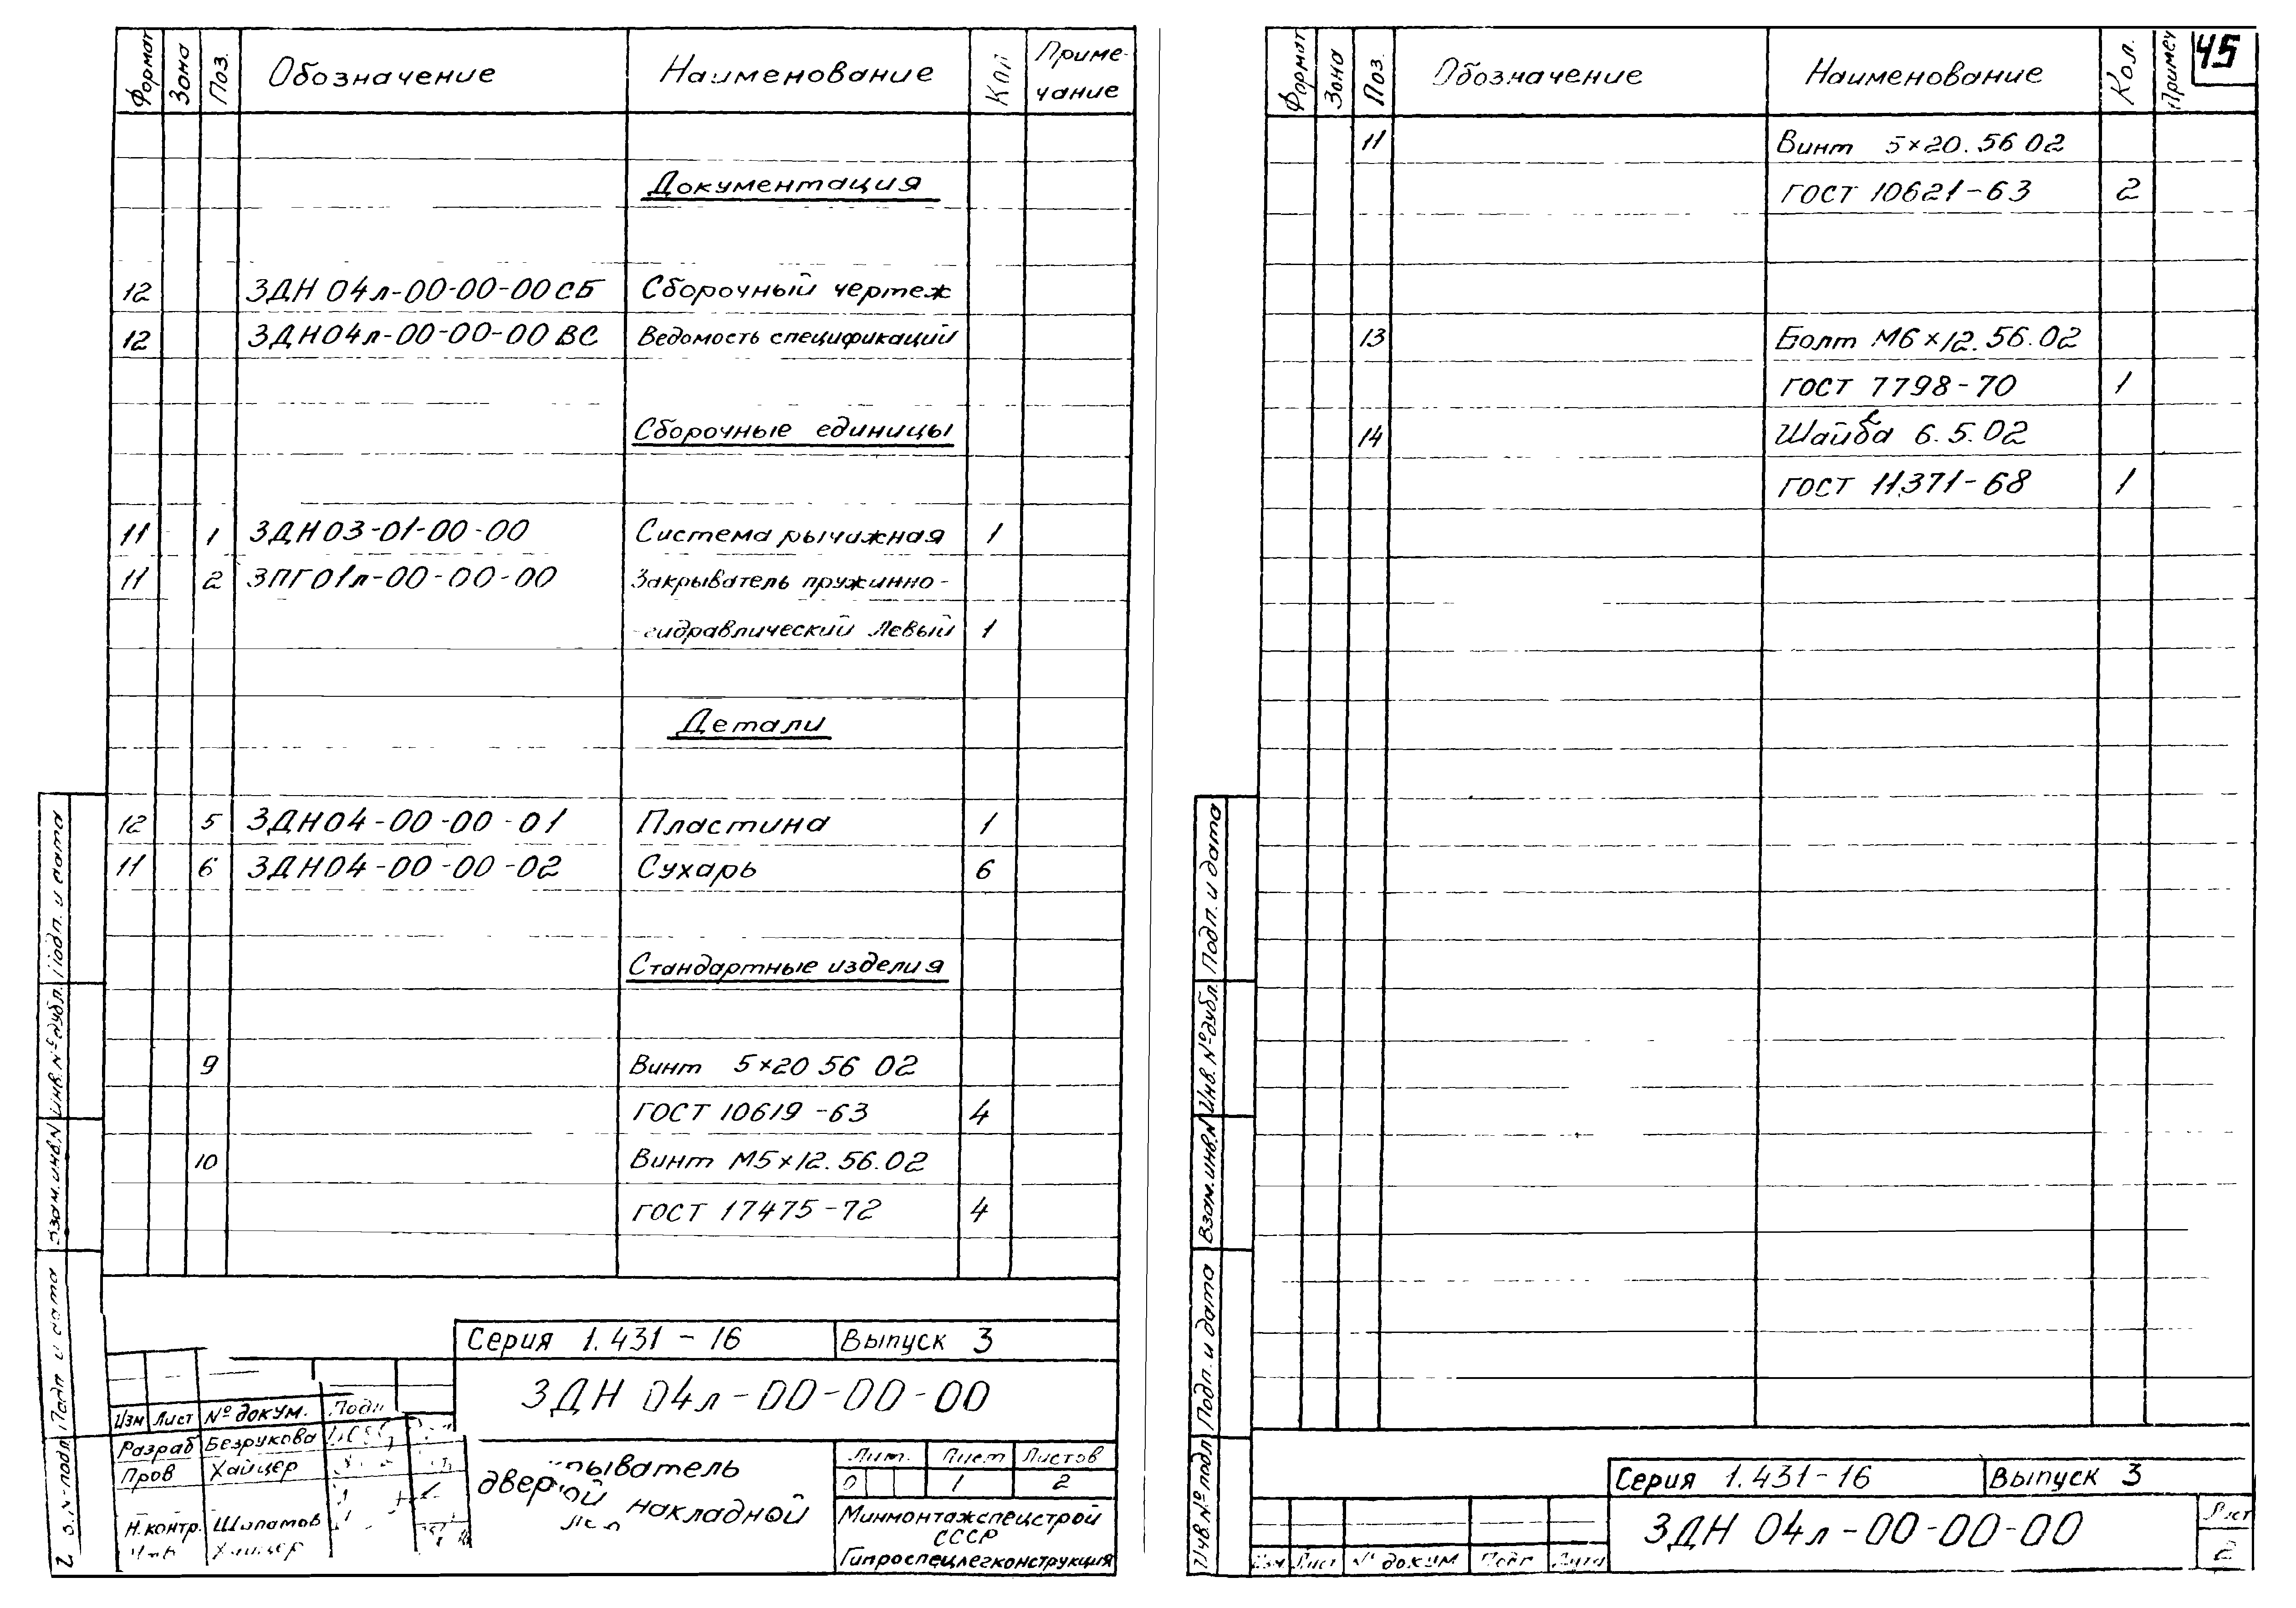 Формат Зона Поз. Обозначение Наименование Кол Приме-
чание
Документация
12 ЗДН 04л-00-00-00 СБ Сборочный чертеж
12 ЗДН04л-00-00-00 ВС Ведомость спецификаций
Сборочные единицы
11 1 ЗДН03-01-00-00 Система рычижная 1
11 2 ЗПГ01л-00-00-00 Закрыватель пружинно-
-гидравлический левый 1
Детали
12 5 ЗДН04-00-00-01 Пластина 1
11 6 ЗДН04-00-00-02 Сухарь 6
Стандартные изделия
9 Винт 5×20 56 02
ГОСТ 10619-63 4
10 Винт М5×12.56.02
ГОСТ 17475-72 4
Подп. и дата
Инв.№дубл.
Взам.инв.№
Подп и дата
№подл
Серия 1.431-16 Выпуск 3
ЗДН 04л-00-00-00
Изм Лист № докум. Подп
Разраб Безрукова
Пров Хайцер
Н.контр. Шипатов
Хайцер
дверной накладной
Лит. Лист Листов
1 2
Минмонтажспецстрой
СССР
Гипроспецлегконструкция
45
Формат Зона Поз. Обозначение Наименование Кол. Примеч
11 Винт 5×20.56 02
ГОСТ 10621-63 2
13 Болт М6×12.56.02
ГОСТ 7798-70 1
14 Шайба 6.5.02
ГОСТ 11371-68 1
Подп. и дата
Инв.№дубл.
Взам.инв.№
Подп. и дата
Инв.№подл
Серия 1.431-16 Выпуск 3
ЗДН 04л-00-00-00
Изм Лист № докум Подп Дата
Лист
2